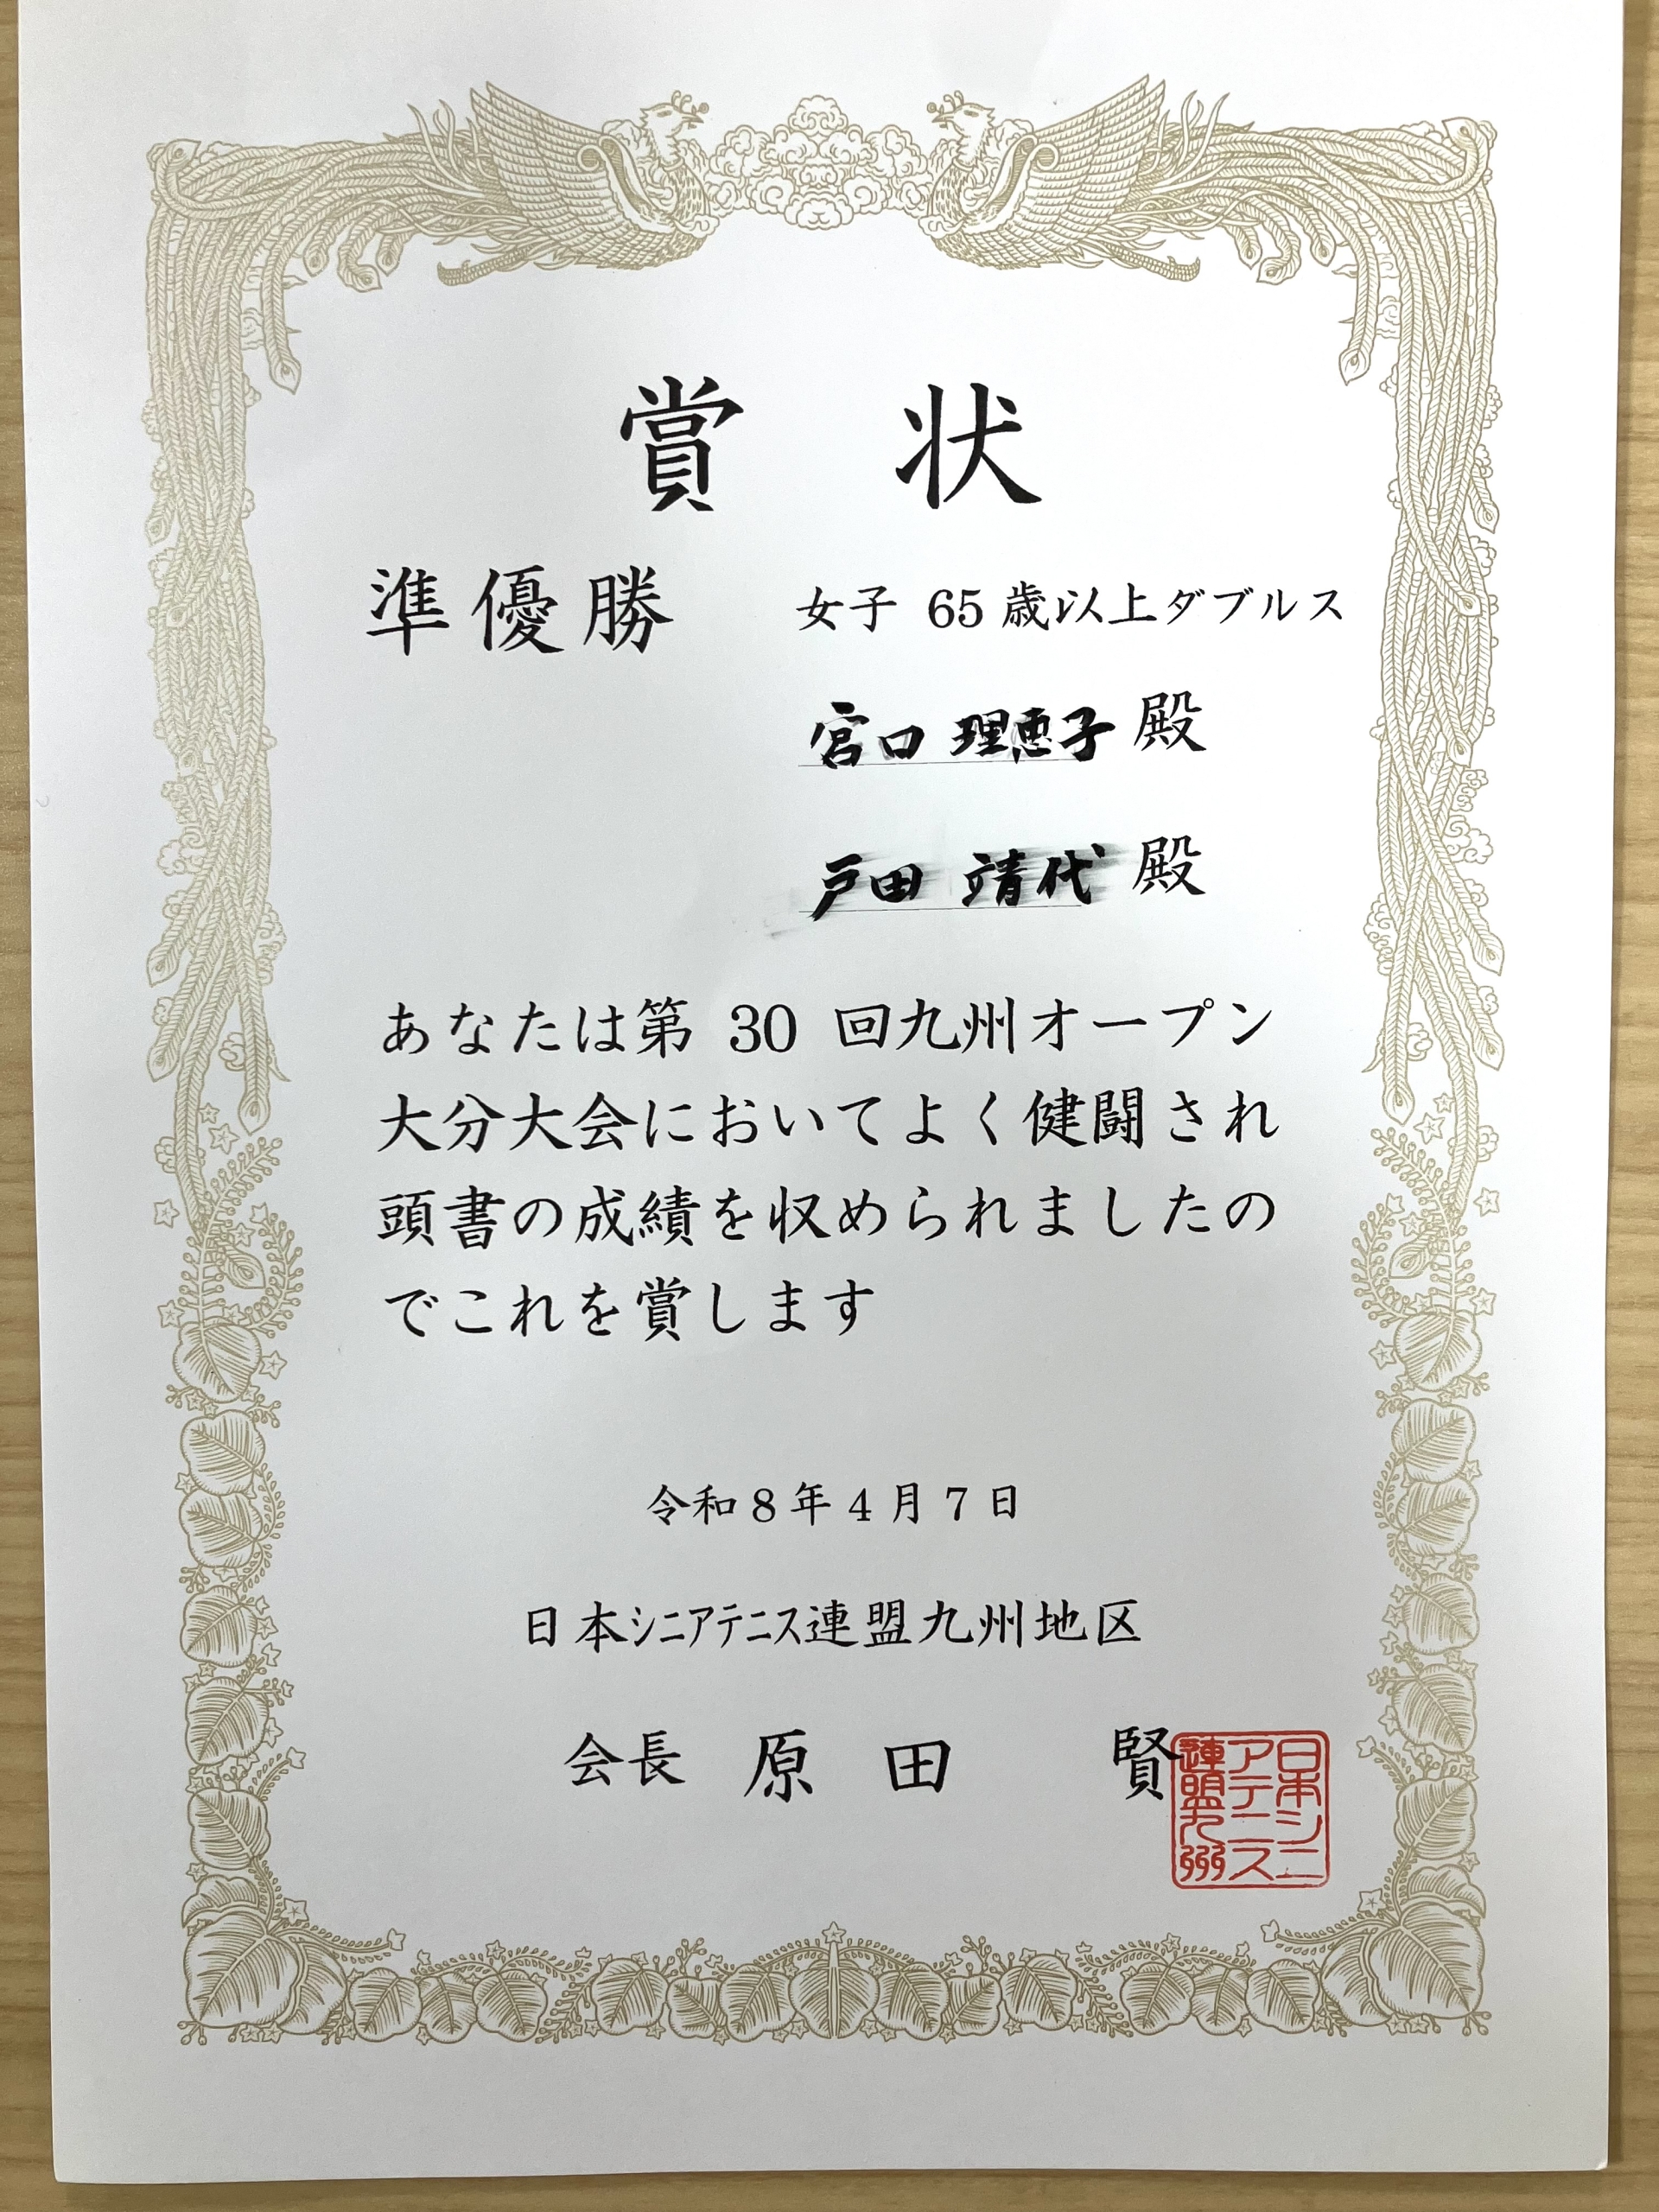 賞 状
準優勝 女子 65 歳以上ダブルス
宮口 理恵子 殿
戸田 靖代 殿
あなたは第 30 回九州オープン
大分大会においてよく健闘され
頭書の成績を収められましたの
でこれを賞します
令和8年4月7日
日本シニアテニス連盟九州地区
会長 原田 賢
日本シニ
アテニス
連盟九州